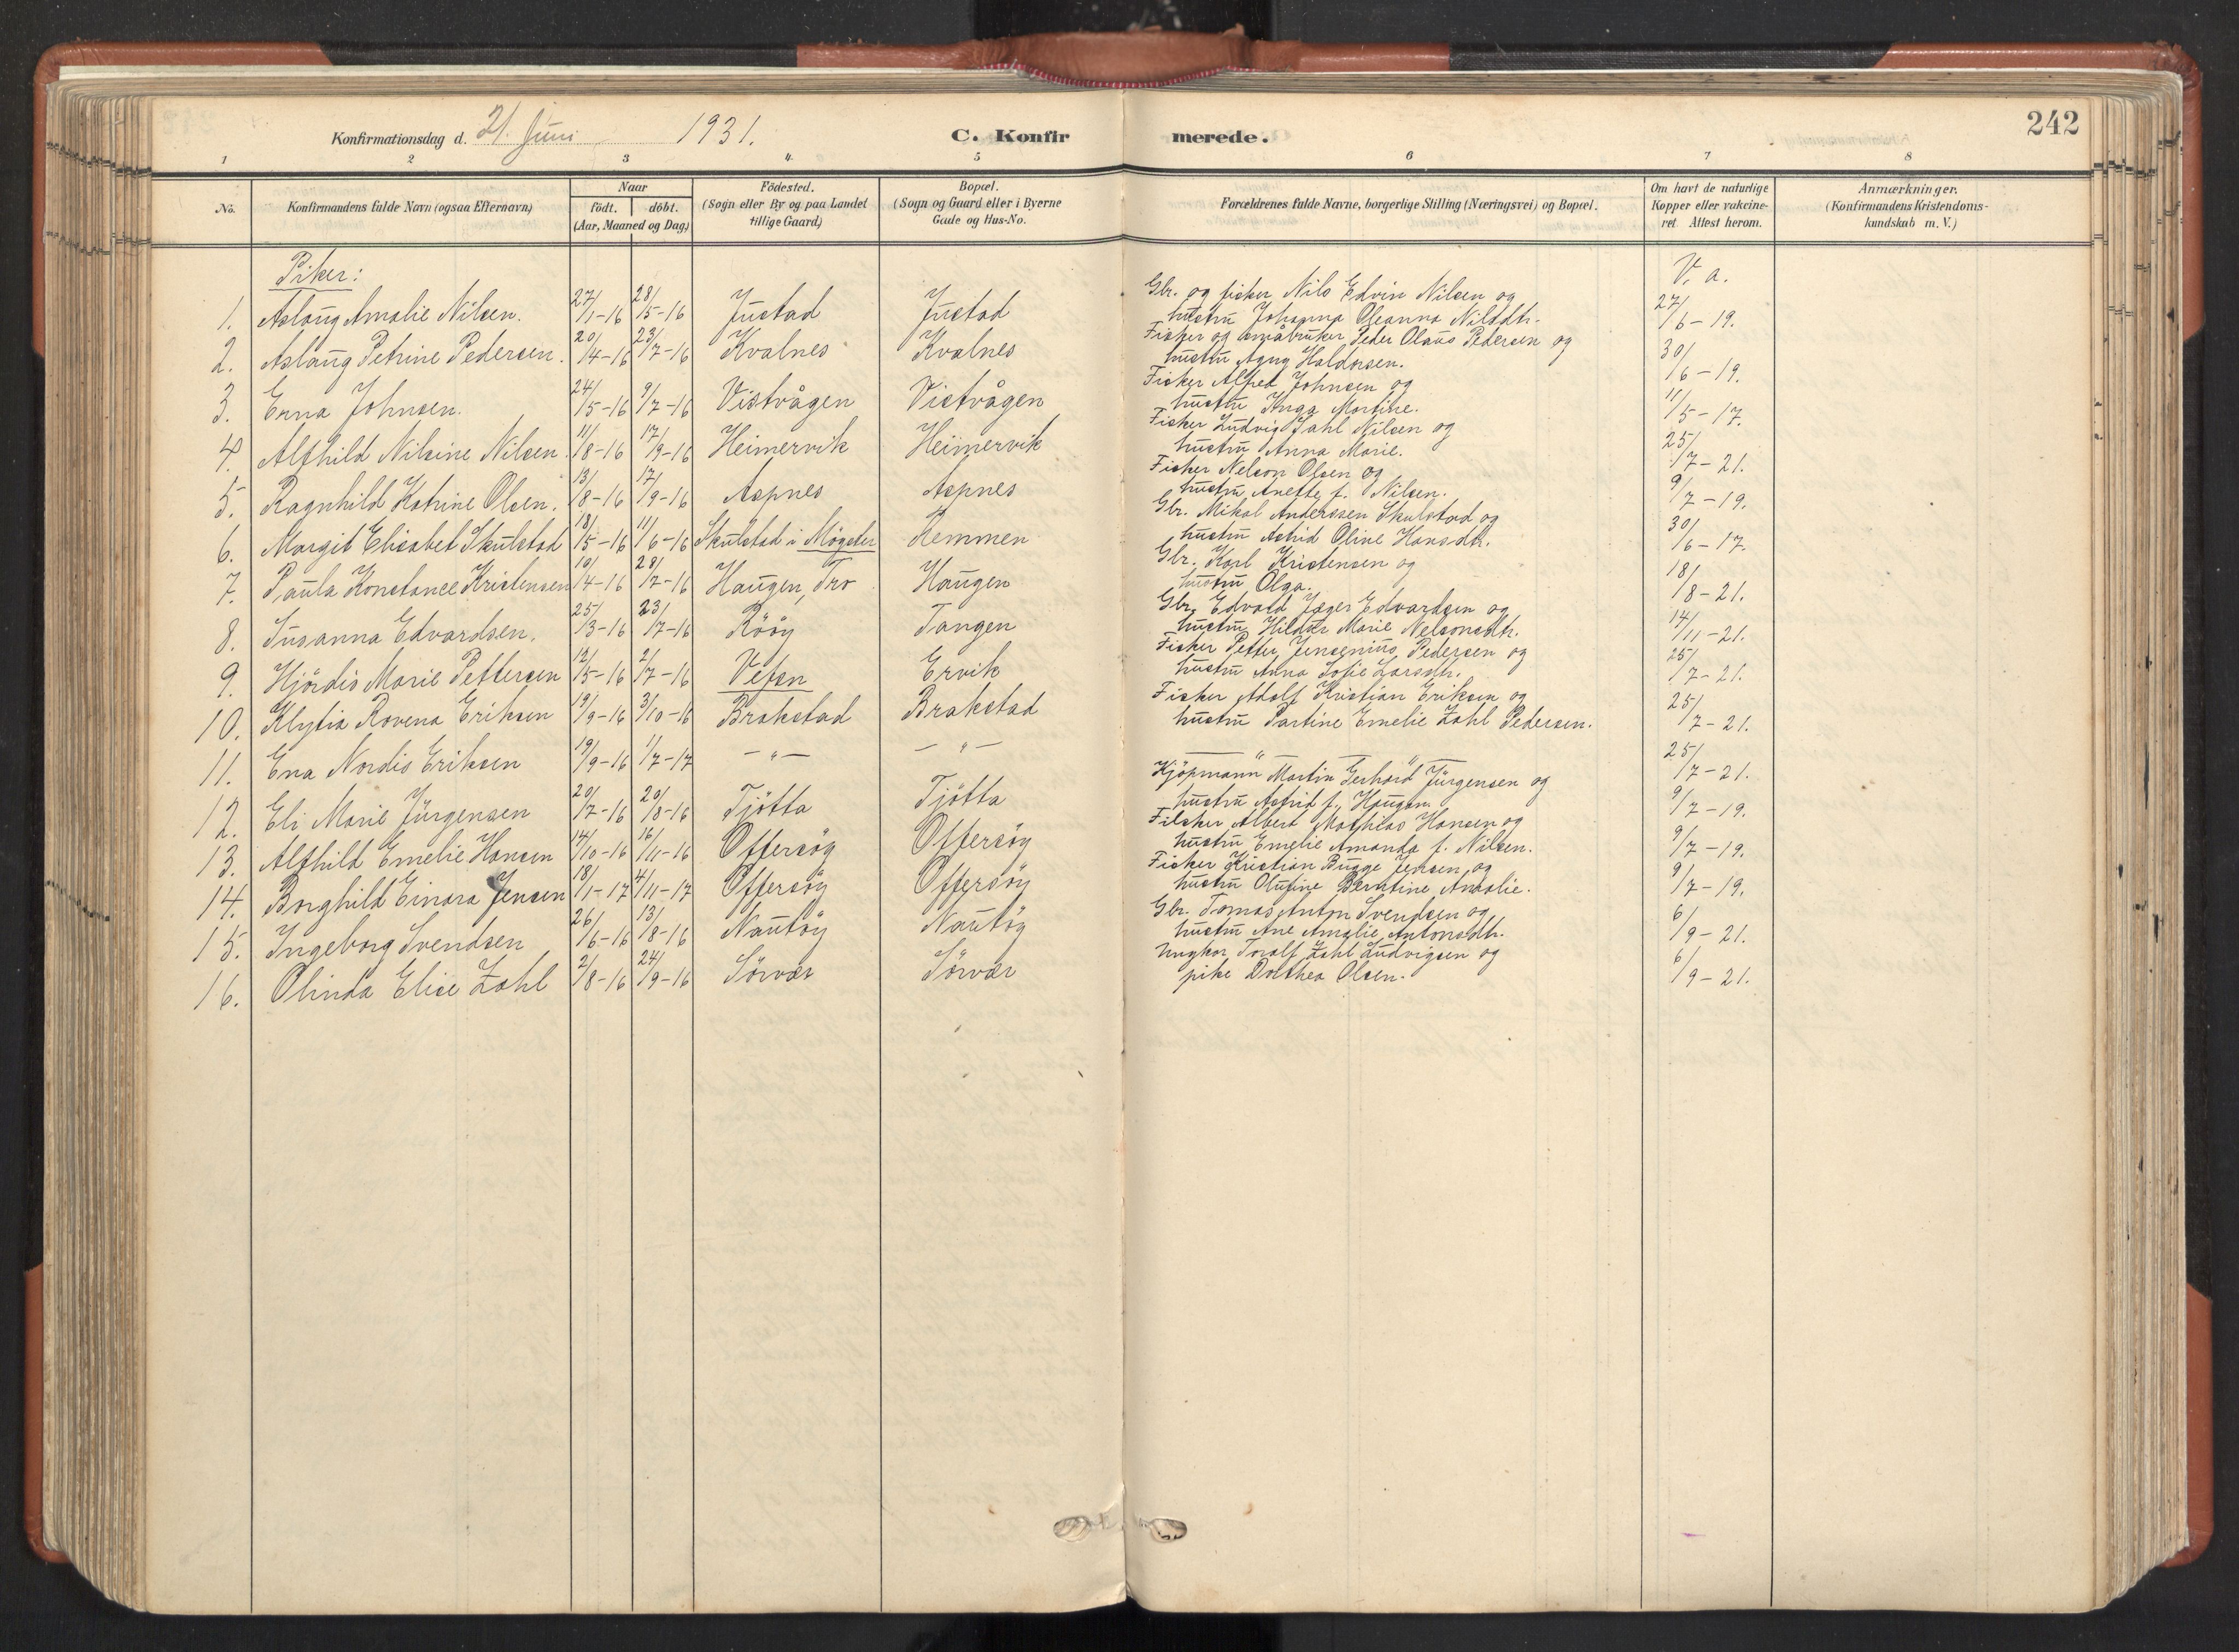 242
Konfirmationsdag d. 21. Juni 1931.
C. Konfirmerede.
1 2 3 4. 5 6 7 8
No. Konfirmandens fulde Navn (ogsaa Efternavn) Naar födt. döbt. (Aar, Maaned og Dag.) Födested. (Sogn eller By og paa Landet tillige Gaard) Bopæl. (Sogn og Gaard eller i Byerne Gade og Hus-No. Forældrenes fulde Navne, borgerlige Stilling (Næringsvei) og Bopæl. Om havt de naturlige Kopper eller vakcineret. Attest herom. Anmærkninger. (Konfirmandens Kristendomskundskab m. V.)
Piker: V. a.
1. Aslaug Amalie Nilsen. 27/1-16 28/5-16 Justad Justad Gbr. og fisker Nils Edvin Nilsen og hustru Johanna Oleanna Nilsdtr. 27/6-19.
2. Aslaug Petrine Pedersen. 20/4-16 23/7-16 Kvalnes Kvalnes Fisker og småbruker Peder Olaus Pedersen og hustru Agny Haldorsen. 30/6-19.
3. Erna Johnsen. 24/5-16 9/7-16 Vistvågen Vistvågen Fisker Alfred Johnsen og hustru Inga Martine. 11/5-17.
4. Alfhild Nilsine Nilsen. 11/8-16 17/9-16 Heimervik Heimervik Fisker Ludvig Zahl Nilsen og hustru Anna Marie. 25/7-21.
5. Ragnhild Katrine Olsen. 13/8-16 17/9-16 Aspnes Aspnes Fisker Nelson Olsen og hustru Anette f. Nilsen. 9/7-19.
6. Margit Elisabet Skulstad 18/5-16 11/6-16 Skulstad i Møgster Remmen Gbr. Mikal Anderssen Skulstad og hustru Astrid Oline Hansdtr. 30/6-17.
7. Paula Konstance Kristensen 10/4-16 28/7-16 Haugen, Tro Haugen Gbr. Karl Kristensen og hustru Olga. 18/8-21.
8. Susanna Edvardsen. 25/3-16 23/7-16 Rööy Tangen Gbr. Edvald Jæger Edvardsen og hustru Hildur Marie Nelsonsdtr. 14/11-21.
9. Hjördis Marie Pettersen 12/5-16 2/7-16 Vefsn Ervik Fisker Petter Jensenius Pedersen og hustru Anna Sofie Larsdtr. 25/7-21.
10. Klytia Rovena Eriksen 19/9-16 3/10-16 Brakstad Brakstad Fisker Adolf Kristian Eriksen og hustru Partine Emelie Zahl Pedersen. 25/7-21.
11. Ena Nordis Eriksen 19/9-16 1/7-17 — " — — " — — " — " — 25/7-21.
12. Eli Marie Jürgensen 20/7-16 20/8-16 Tjötta Tjötta Kjöpmann Martin Gerhard Jürgensen og hustru Astrid f. Haugen. 9/7-19.
13. Alfhild Emelie Hansen 14/10-16 16/11-16 Offersöy Offersöy Fisker Albert Mathias Hansen og hustru Emelie Amanda f. Nilsen. 9/7-19.
14. Borghild Einara Jensen 18/1-17 4/11-17 Offersöy Offersöy Fisker Kristian Bugge Jensen og hustru Olufine Berntine Amalie. 9/7-19.
15. Ingeborg Svendsen 26/6-16 13/8-16 Nautöy Nautöy Gbr. Tomas Anton Svendsen og hustru Ane Amalie Antonsdtr. 6/9-21.
16. Olinda Elise Zahl 2/8-16 24/9-16 Sörvær Sörvær Ungkar Toralf Zahl Ludvigsen og pike Dorthea Olsen. 6/9-21.